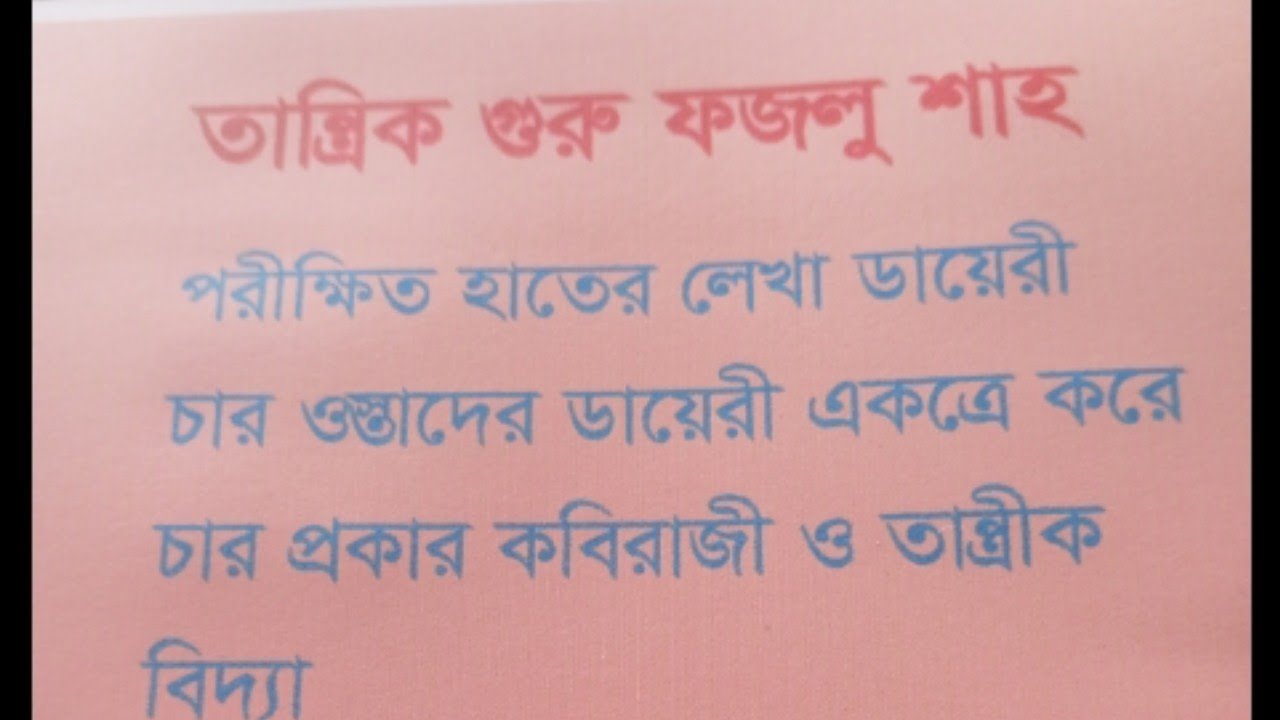 তান্ত্রিক গুরু ফজলু শাহ
পরীক্ষিত হাতের লেখা ডায়েরী
চার ওস্তাদের ডায়েরী একত্রে করে
চার প্রকার কবিরাজী ও তান্ত্রীক
বিদ্যা